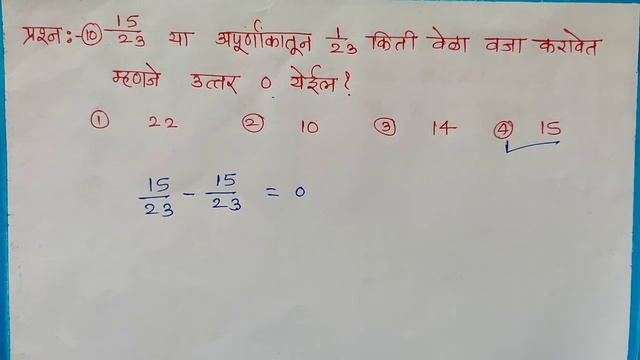 प्रश्न:-⑩ 15/23 या अपूर्णांकातून 1/23 किती वेळा वजा करावेत
म्हणजे उत्तर 0 येईल?
① 22 ② 10 ③ 14 ④ 15
15/23 - 15/23 = 0